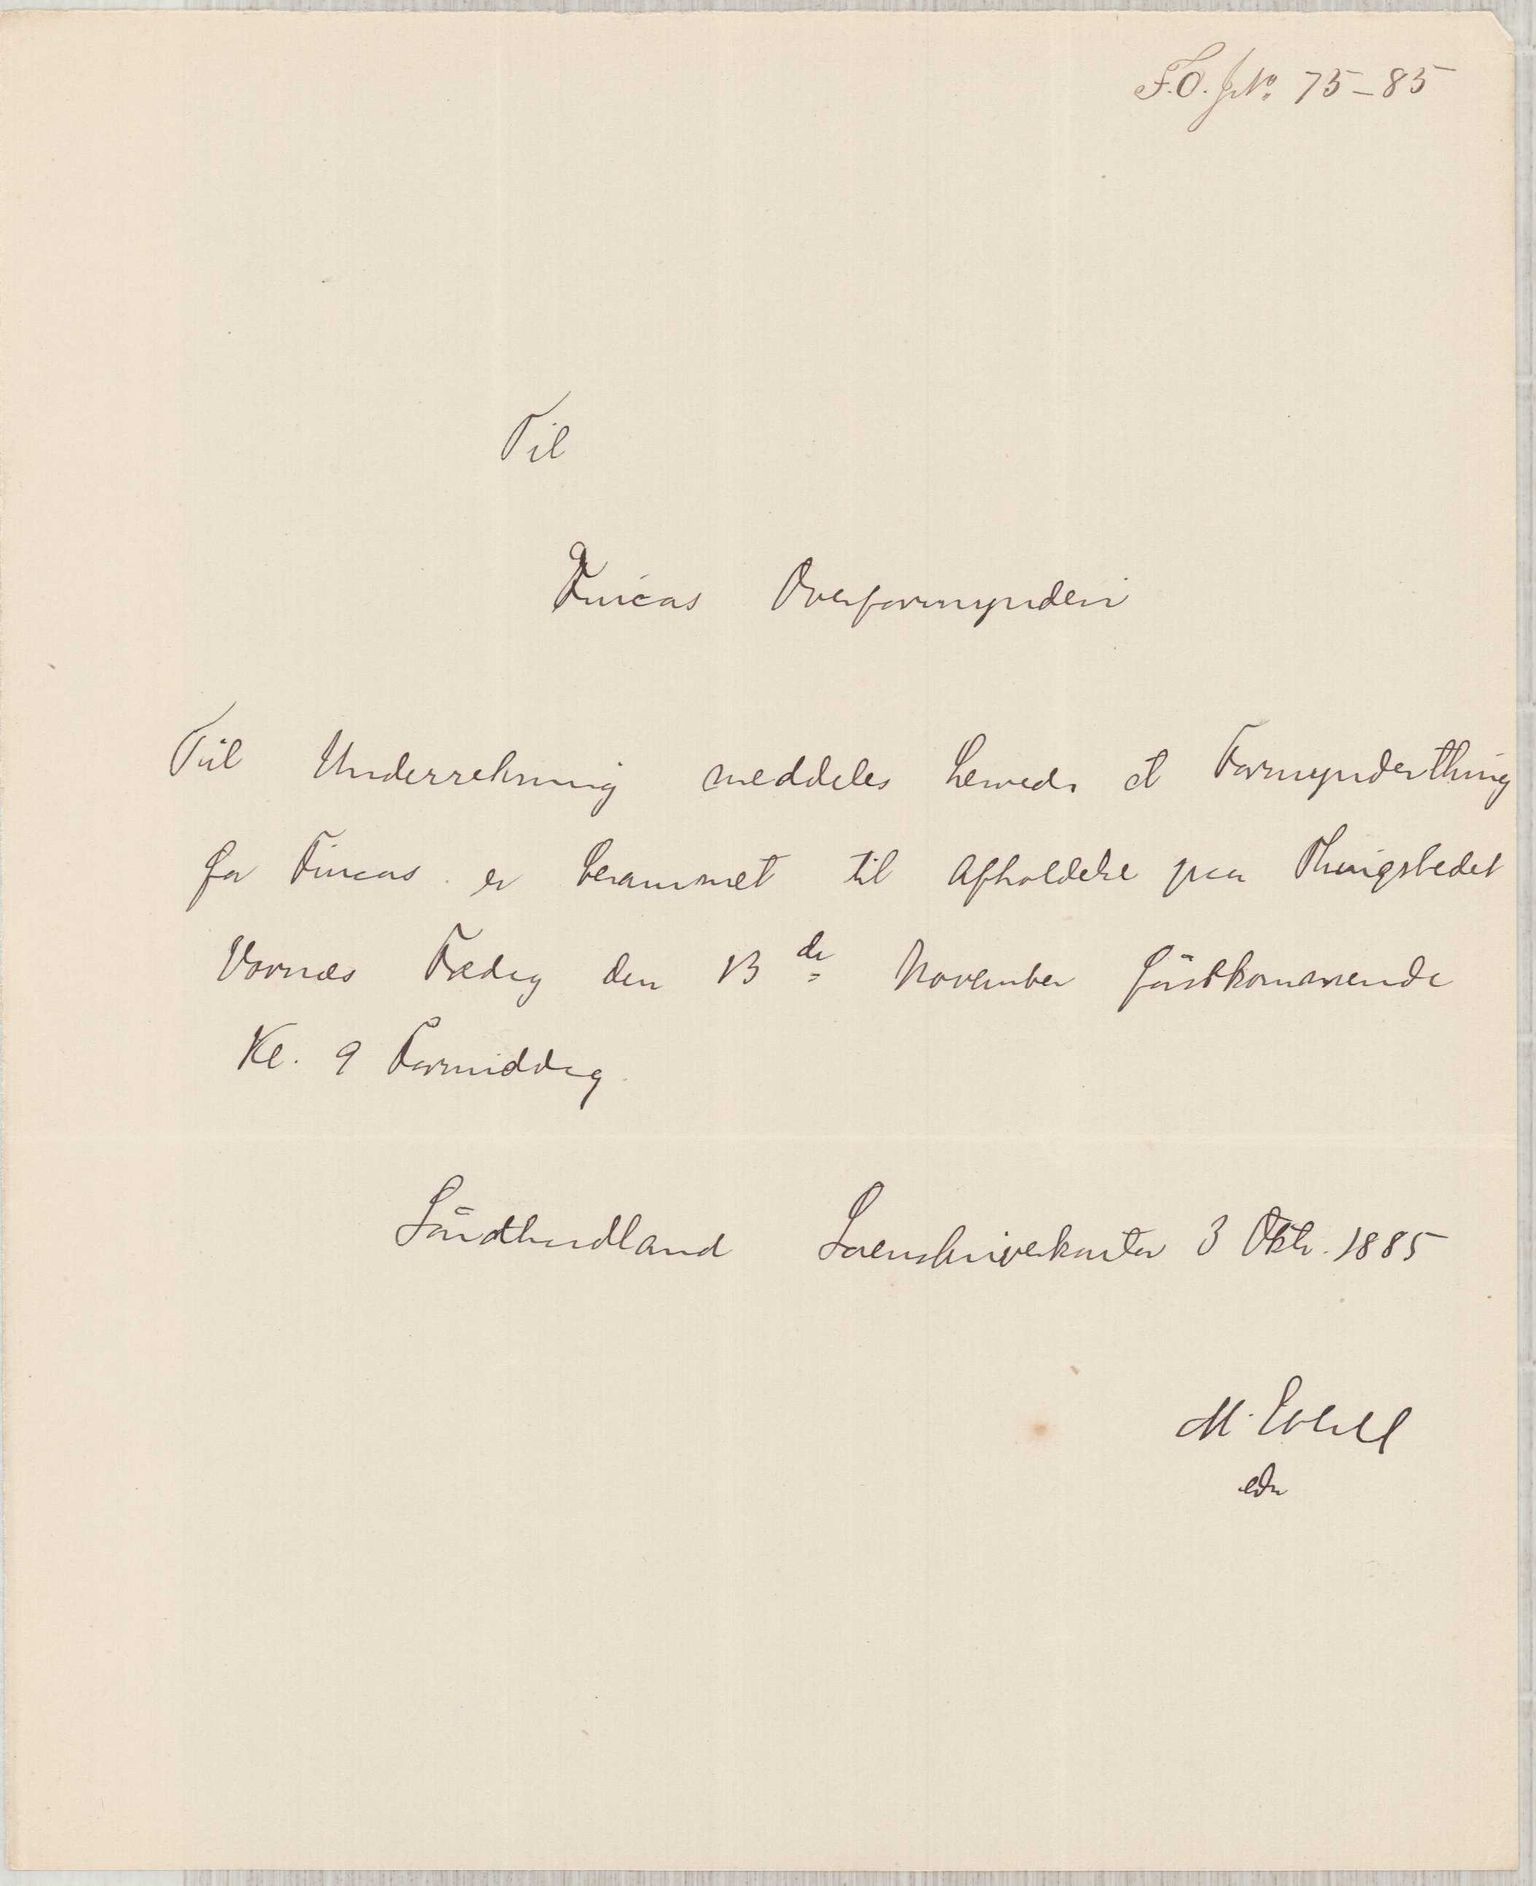 F.O. JNo. 75-85
Til
Finaas Overformynderi
Til Underretning meddeles herved at Formynderthing
for Finaas er berammet til Afholdelse paa Thingstedet
Vornæs Fredag den 13de November førstkommende
Kl. 9 Formiddag.
Søndhordland Sorenskriverkontor 3 Oktr. 1885
M.